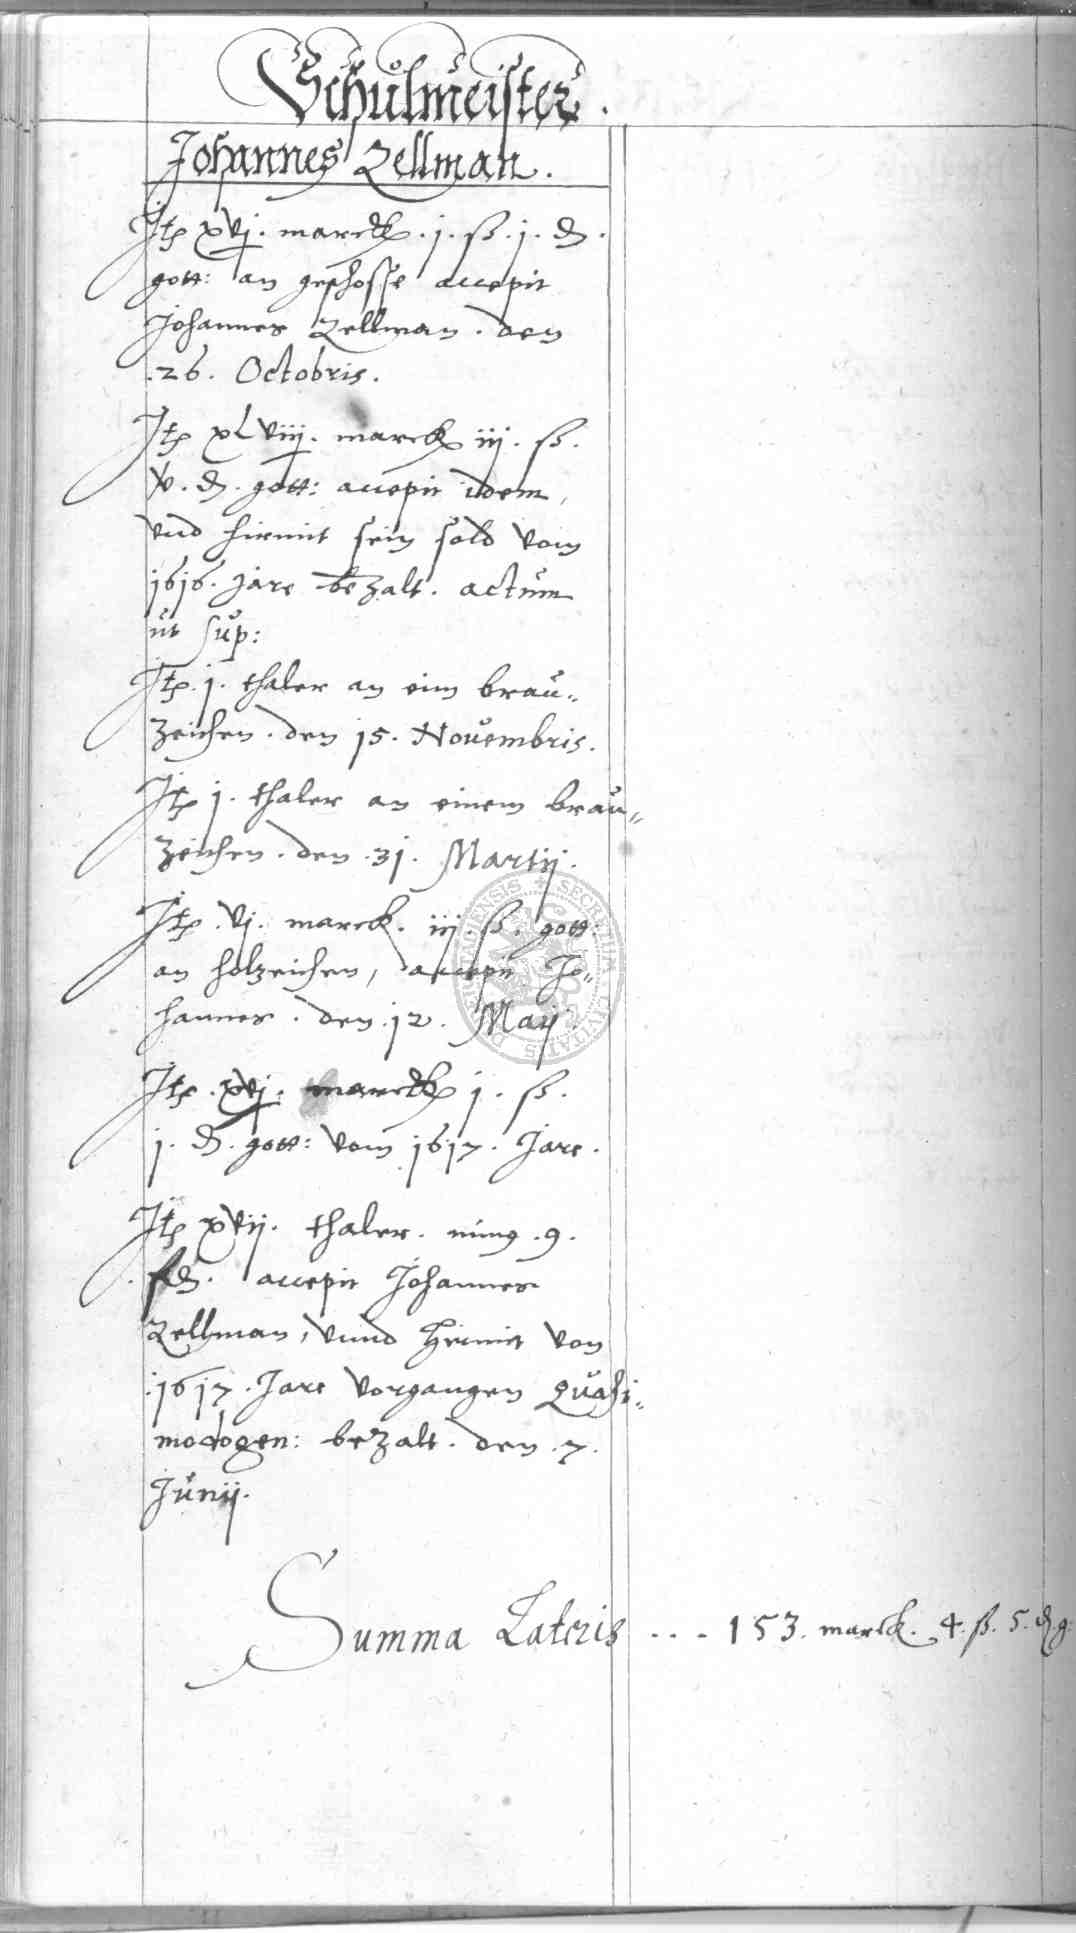 Schulmeister.
Johannes Zellman.
Itp xvj. marck. j. ß. j. ₰.
gott: an geschosse accepit
Johannes Zellman. den
.26. Octobris.
Itp xLviij. marck iij. ß.
v. ₰. gott: accepit idem,
vnd hirmit sein sold vom
1616. jare bezalt. actum
ut sup:
Itp. j. thaler an eim brau=
zeichen. den 15. Novembris.
Itp j. thaler an einem brau=
zeichen. den .31. Martij.
Itp. vj. marck. iij. ß. gott:
an holzeichen, accepit Jo=
hannes. den .12. Maij
Itp. xvj. marck j. ß.
j. ₰. gott: vom 1617. Jare.
Itp xvij. thaler. min9 .9.
₰. accepit Johannes
Zellman, vnnd hirmit von
.1617. Jare vorgangen Quasi=
modogen: bezalt. den .7.
Junij.
Summa Lateris ... 153. marck. 4. ß. 5. ₰. g:
SECRETUM CIVITATIS